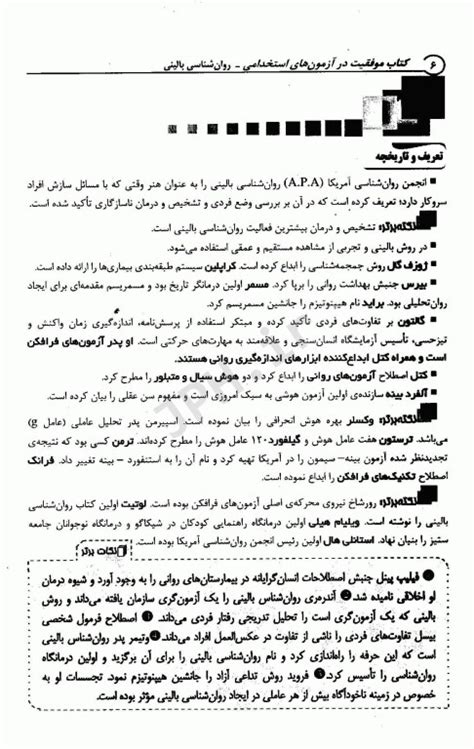 ۶ کتاب موفقیت در آزمون‌های استخدامی - روان‌شناسی بالینی
تعریف و تاریخچه
■ انجمن روان‌شناسی آمریکا (A.P.A) روان‌شناسی بالینی را به عنوان هنر وقتی که با مسائل سازش افراد
سروکار دارد؛ تعریف کرده است که در آن بر بررسی وضع فردی و تشخیص و درمان ناسازگاری تأکید شده است.
نکته برتر: تشخیص و درمان بیشترین فعالیت روان‌شناسی بالینی است.
■ در روش بالینی و تجربی از مشاهده مستقیم و عمقی استفاده می‌شود.
■ ژوزف گال روش جمجمه‌شناسی را ابداع کرده است. کراپلین سیستم طبقه‌بندی بیماری‌ها را ارائه داده است.
■ بیرس جنبش بهداشت روانی را برپا کرد. مسمر اولین درمانگر تاریخ بود و مسمریسم مقدمه‌ای برای ایجاد
روان‌تحلیلی بود. براید نام هیپنوتیزم را جانشین مسمریسم کرد.
■ گالتون بر تفاوت‌های فردی تأکید کرده و مبتکر استفاده از پرسش‌نامه، اندازه‌گیری زمان واکنش و
تیزحسی، تأسیس آزمایشگاه انسان‌سنجی و علاقه‌مند به مهارت‌های حرکتی است. او پدر آزمون‌های فرافکن
است و همراه کتل ابداع‌کننده ابزارهای اندازه‌گیری روانی هستند.
■ کتل اصطلاح آزمون‌های روانی را ابداع کرد و دو هوش سیال و متبلور را مطرح کرد.
■ آلفرد بینه سازنده‌ی اولین آزمون هوشی به سبک امروزی است و مفهوم سن عقلی را بیان کرده است.
نکته برتر: وکسلر بهره هوش انحرافی را بیان نموده است. اسپیرمن پدر تحلیل عاملی (عامل g)
می‌باشد. ترستون هفت عامل هوش و گیلفورد ۱۲۰ عامل هوش را مطرح کرده‌اند. ترمن کسی بود که نتیجه‌ی
تجدیدنظر شده آزمون بینه- سیمون را در آمریکا تهیه کرد و نام آن را به استنفورد - بینه تغییر داد. فرانک
اصطلاح تکنیک‌های فرافکن را ابداع نموده است.
نکته برتر: رورشاخ نیروی محرکه‌ی اصلی آزمون‌های فرافکن بوده است. لوتیت اولین کتاب روان‌شناسی
بالینی را نوشته است. ویلیام هیلی اولین درمانگاه راهنمایی کودکان در شیکاگو و درمانگاه نوجوانان جامعه
ستیز را بنیان نهاد. استانلی هال اولین رئیس انجمن روان‌شناسی آمریکا بوده است.
نکات برتر
❶ فیلیپ پینل جنبش اصطلاحات انسان‌گرایانه در بیمارستان‌های روانی را به وجود آورد و شیوه درمان
او اخلاقی نامیده شد. ❷ آندرمری روان‌شناس بالینی را یک آزمون‌گری سازمان یافته می‌داند و روش
بالینی که یک آزمون‌گری است را تحلیل تدریجی رفتار فردی می‌داند. ❸ اصطلاح فرمول شخصی
بیسل تفاوت‌های فردی را ناشی از تفاوت در عکس‌العمل افراد می‌داند. ❹ ویتمر پدر روان‌شناس بالینی
است که این حرفه را راه‌اندازی کرد و نام روان‌شناسی بالینی را برای آن برگزید و اولین درمانگاه
روان‌شناسی را تأسیس کرد. ❺ فروید روش تداعی آزاد را جانشین هیپنوتیزم نمود. تجسسات او به
خصوص در زمینه ناخودآگاه بیش از هر عاملی در ایجاد روان‌شناسی بالینی مؤثر بوده است.